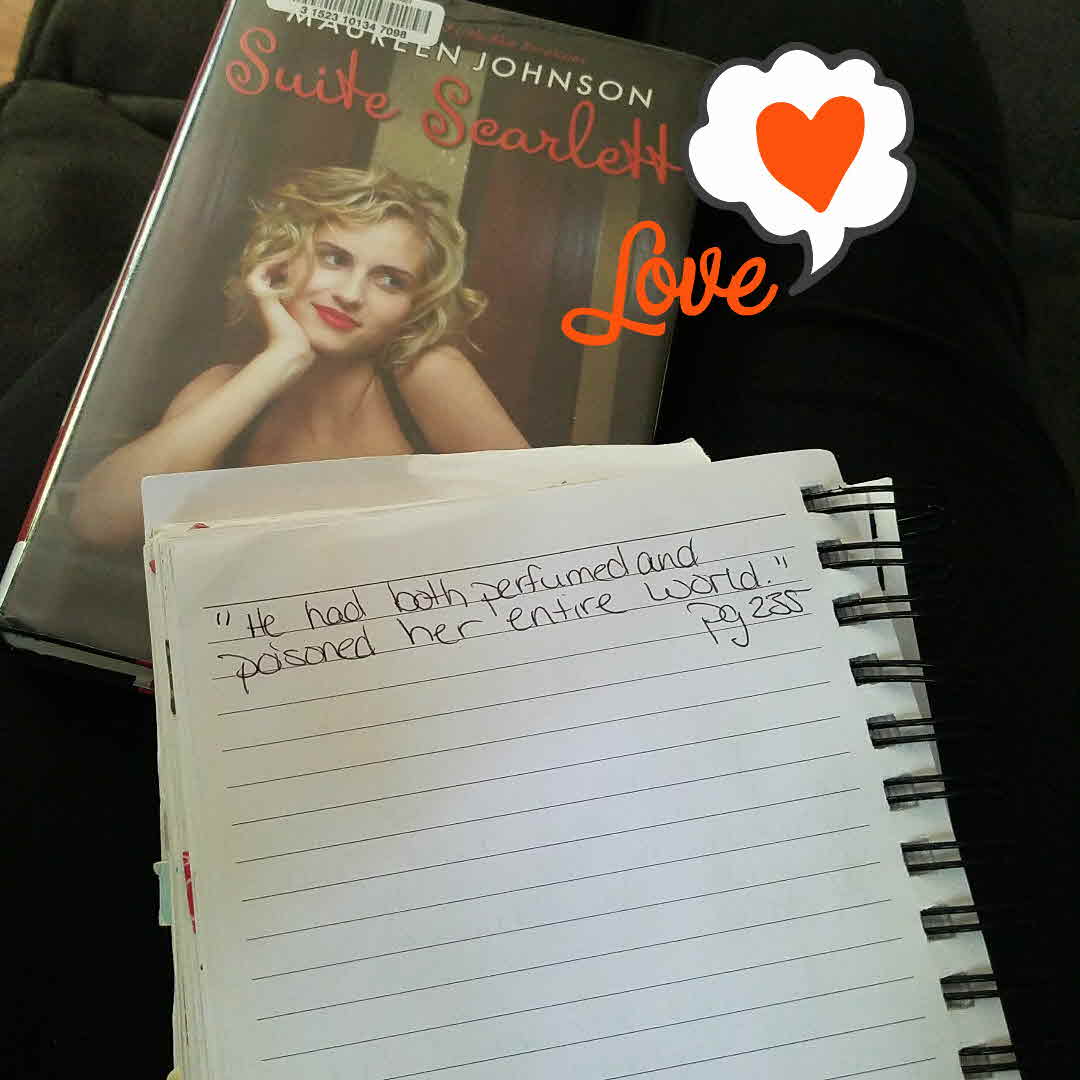 3 1523 10134 7098
MAUREEN JOHNSON
Suite Scarlett
Love
"He had both perfumed and
poisoned her entire world."
pg 235